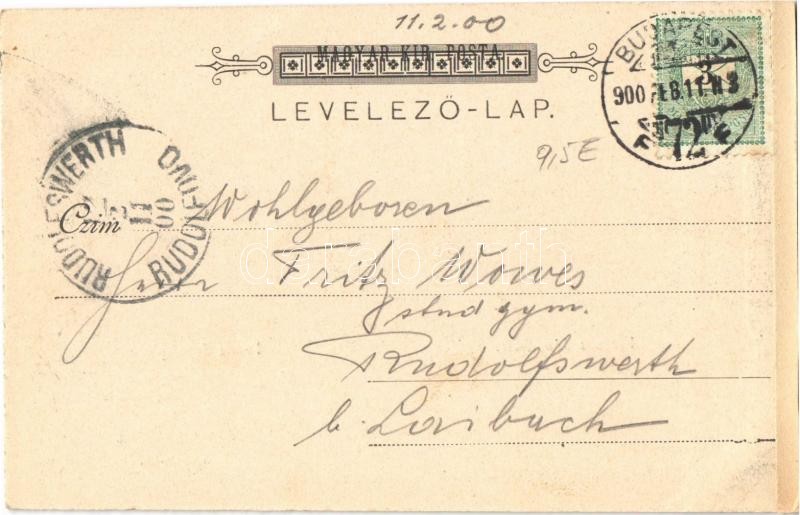 11.2.00
MAGYAR KIR. POSTA.
LEVELEZŐ-LAP.
BUDAPEST
900 FEB. 11
72
9,5 E
RUDOLFSWERTH
RUDOLFOVO
11
00
Czim
Wohlgeboren
Herrn Fritz
stud gym.
Rudolfswerth
b. Laibach
darabanth